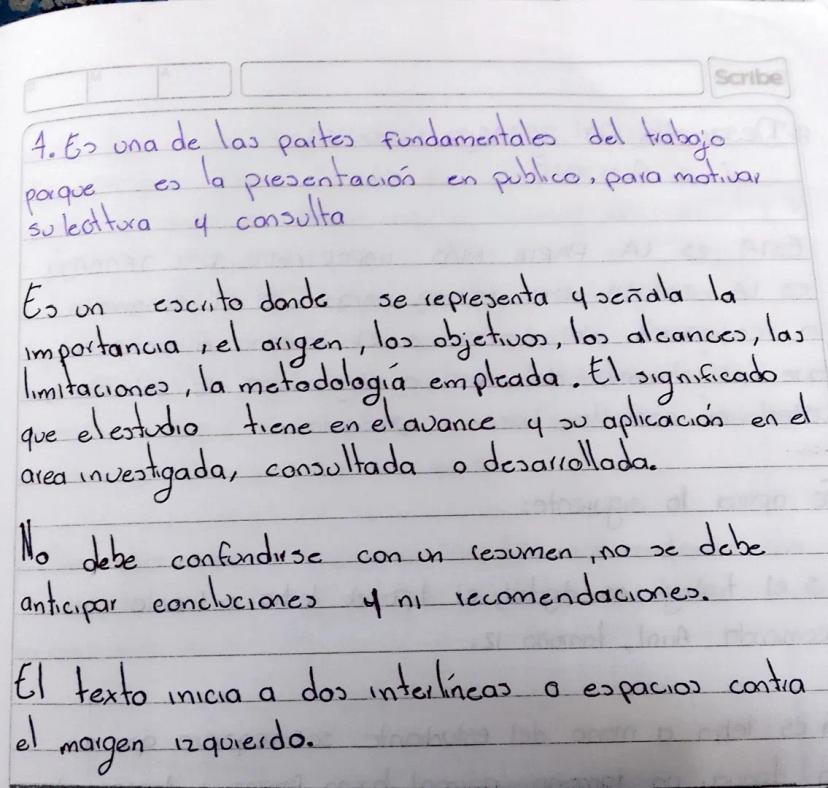 Scribe
1. Es una de las partes fundamentales del trabajo
porque es la presentación en publico, para motivar
su lecttura y consulta
Es un escrito donde se representa y señala la
importancia, el origen, los objetivos, los alcances, las
limitaciones, la metodología empleada. El significado
que el estudio tiene en el avance y su aplicación en el
area investigada, consultada o desarrollada.
No debe confundirse con un resumen, no se debe
anticipar concluciones y ni recomendaciones.
El texto inicia a dos interlíneas o espacios contra
el margen izquierdo.